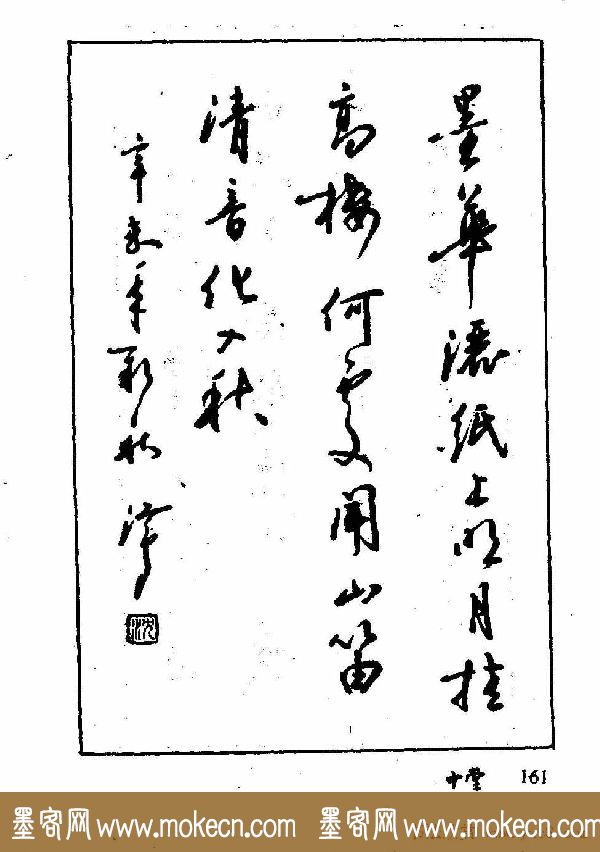 墨華灑紙上明月挂
高樓何處聞山笛
清音化入秋
辛未年新秋
沈
161
墨客网 www.mokecn.com 墨客网 www.mokecn.com